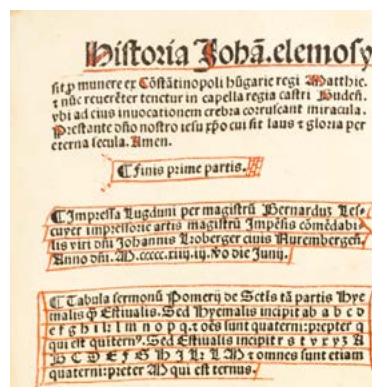 Historia Johā. elemosy
sit ꝓ munere ex Cōstātinopoli hūgarie regi Matthie.
⁊ nūc reuerēter tenetur in capella regia castri Budeñ.
vbi ad eius inuocationem crebra corruscant miracula.
Prestante dño nostro iesu xp̄o cui sit laus ⁊ gloria per
eterna secula. Amen.
¶ Finis prime partis.
¶ Impressa Lugduni per magistrū Bernarduȝ Les⸗
cuyer impressorie artis magistrū Impēsis cōmēdabi
lis viri dñi Johannis Kroberger ciuis Nurembergeñ.
Anno dñi. M.ccccc.xiiij. iij. No die Junij.
¶ Tabula sermonū Pomerij de Sctis tā partis Hye
malis ꝙ̄ Estiualis. Sed Hyemalis incipit ab a b c d
e f g h i k l m n o p q. ⁊ oēs sunt quaterni: preter q
qui est quiternꝰ. Sed Estiualis incipit r s t v x y z A
B C D E F G H I K L M ⁊ omnes sunt etiam
quaterni: preter M qui est ternus.